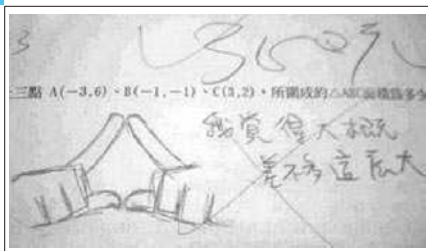 3
三點 A(-3,6)、B(-1,-1)、C(3,2)，所圍成的△ABC面積為多少
我覺得大概
差不多這麼大